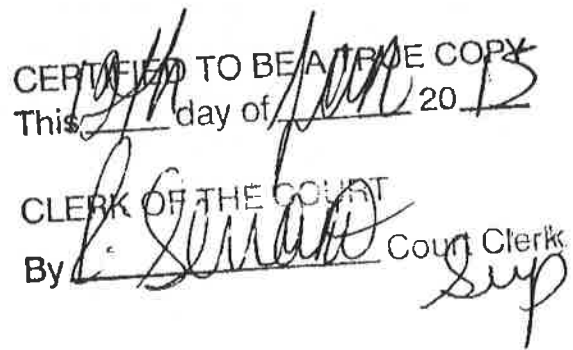 CERTIFIED TO BE A TRUE COPY
This day of Jan 20 15
CLERK OF THE COURT
By Court Clerk
Sup